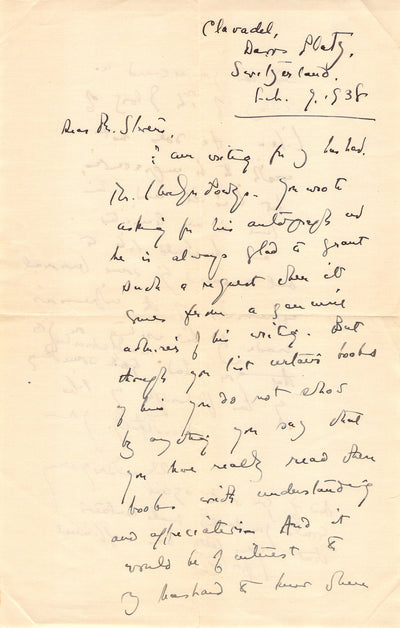 Clavadel,
Davos Platz,
Switzerland.
Feb. 9. 1938
Dear Mr.
I am writing for my husband,
Mr. You wrote
asking for his autograph and
he is always glad to grant
such a request when it
comes from a genuine
admirer of his writing. But
though you list certain books
of his you do not show
by anything you say that
you have really read these
books with understanding
and appreciation. And it
would be of interest to
my husband to know where